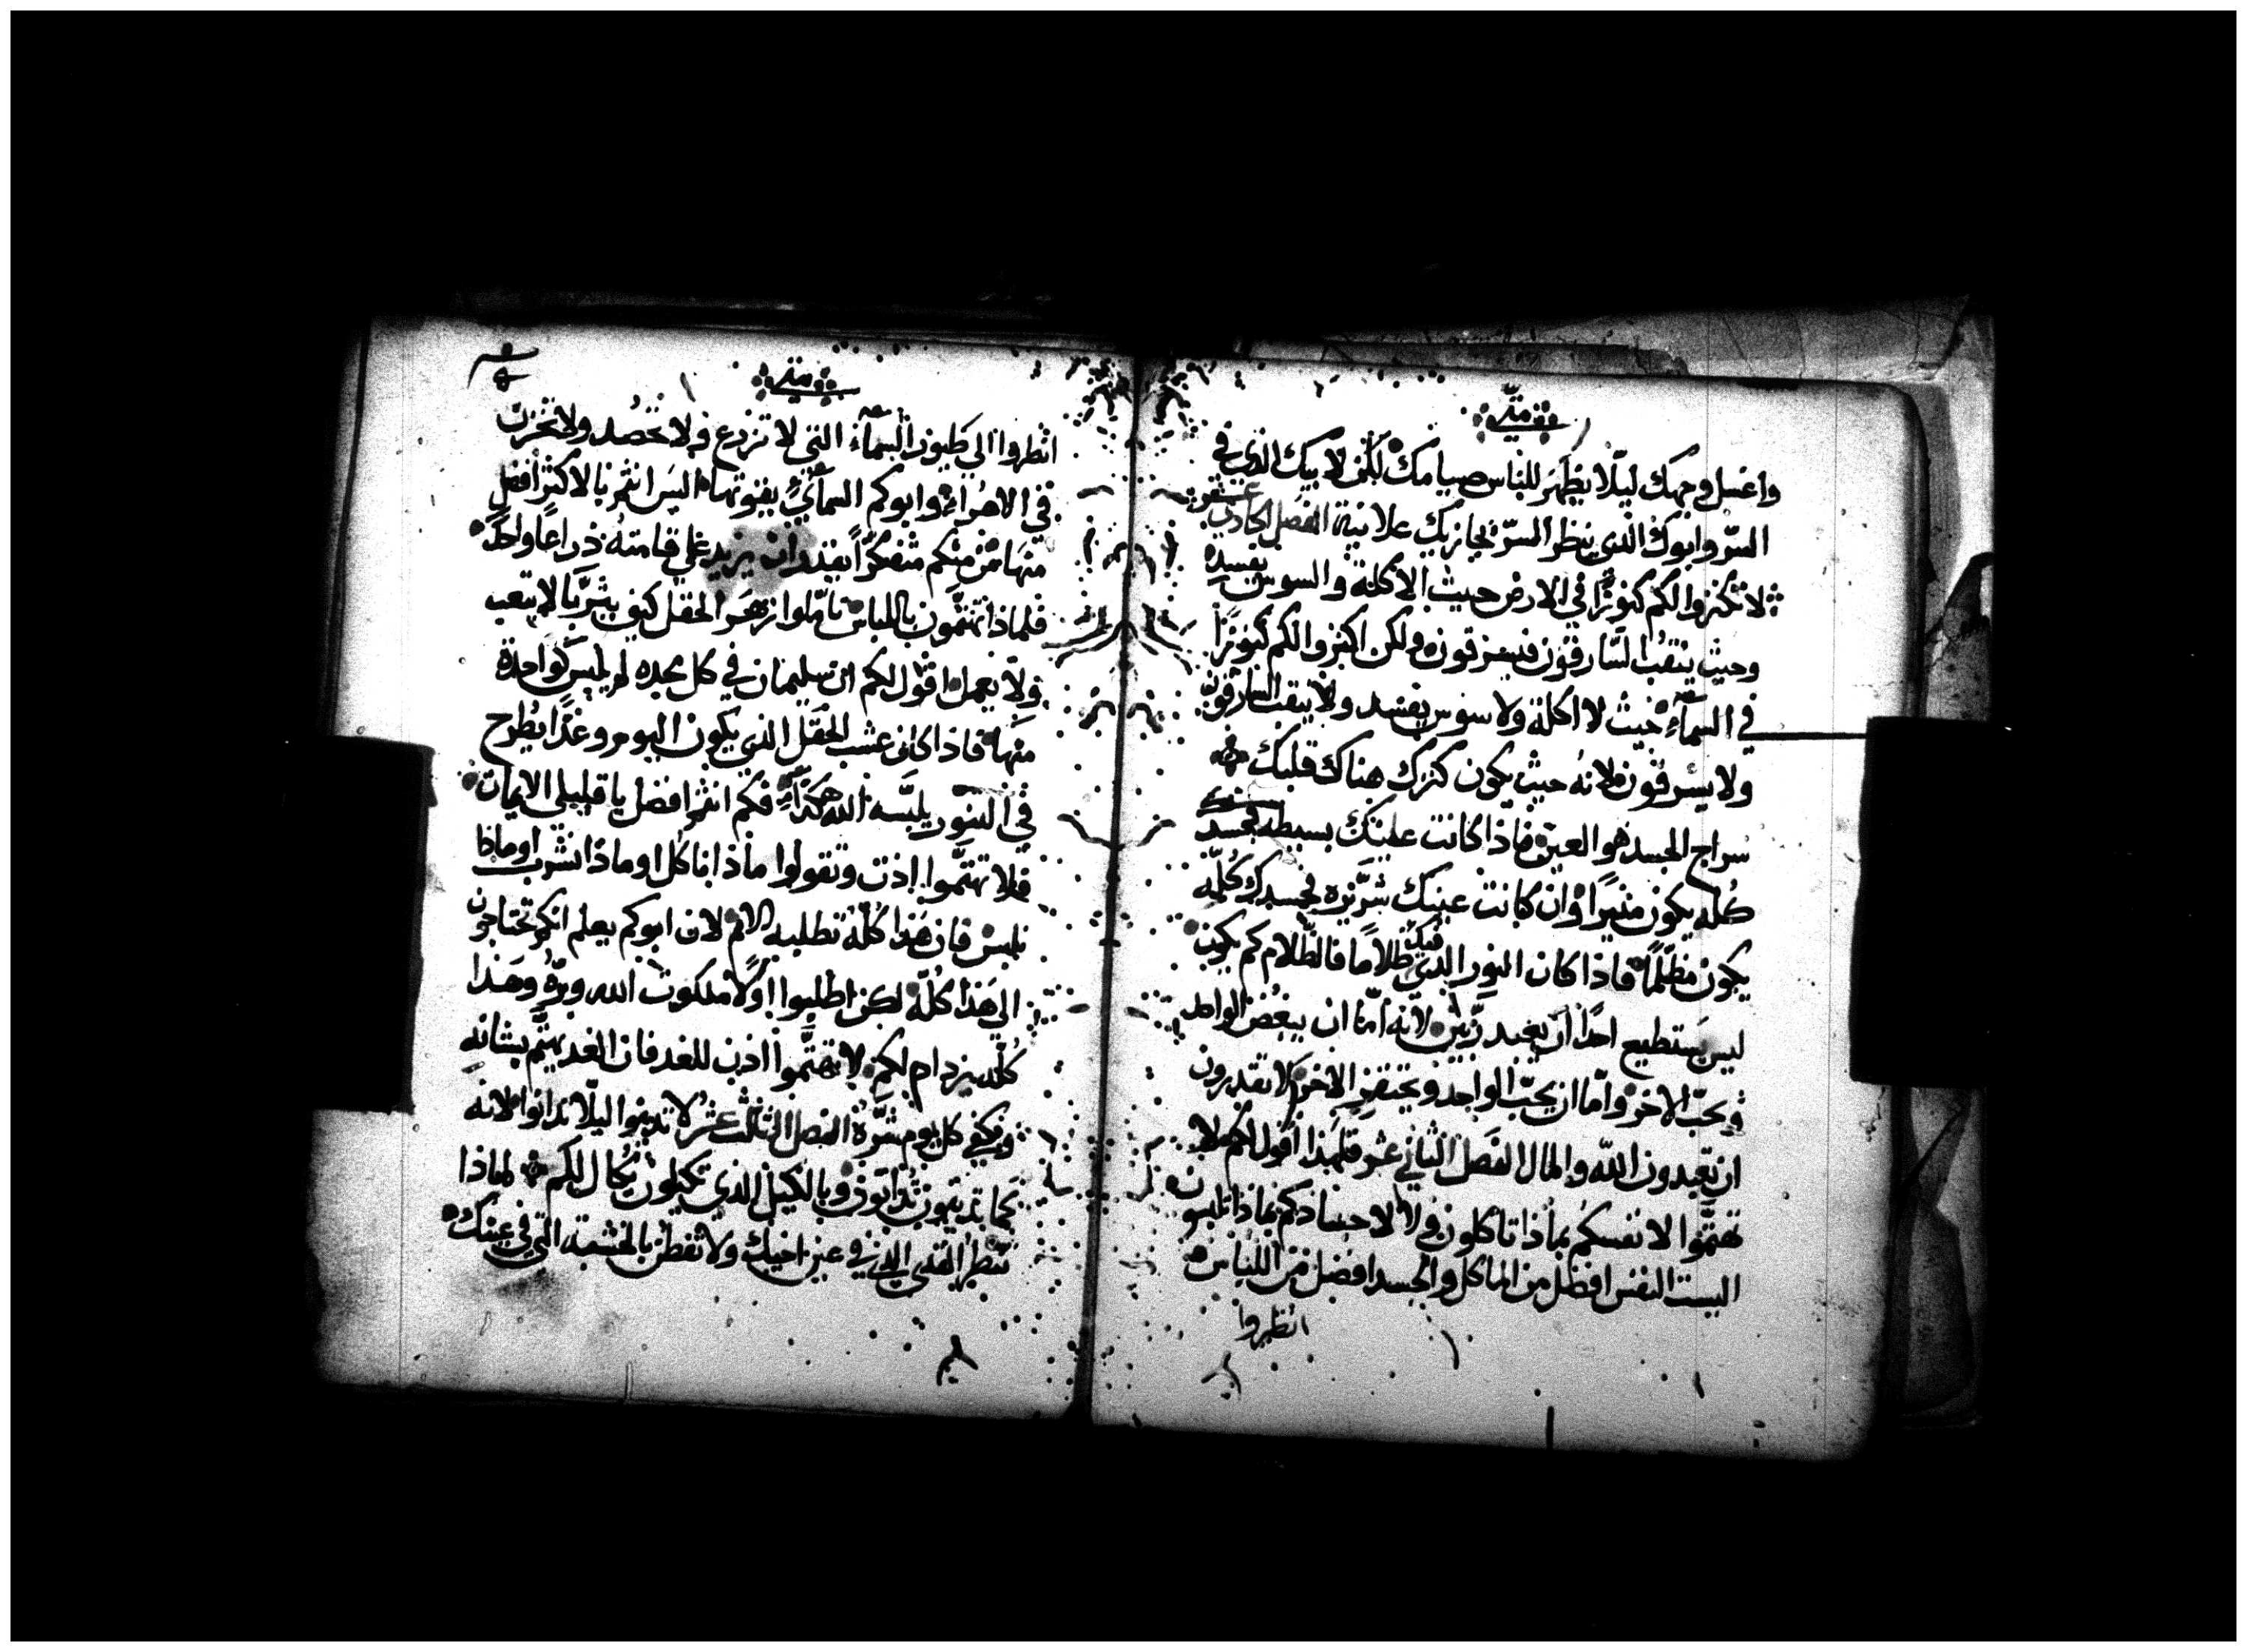 متى
واغسل وجهك ليلّا يظهر للناس صيامك لكن لابيك الذي في
السرّ وابوك الذي ينظر السرّ يجازيك علانية الفصل الحادي عشر
لا تكنزوا لكم كنوزًا في الارض حيث الاكلة والسوس يفسده
وحيث ينقب السّارقون فيسرقون ولكن اكنزوا لكم كنوزًا
في السمآءِ حيث لا اكلة ولا سوس يفسد ولا ينقب السارقون
ولا يسرقون لانه حيث يكون كنزك هناك قلبك
سراج الجسد هو العين فاذا كانت عينك بسيطه فجسدك
كُلّه يكون منيرًا وان كانت عينك شرّيره فجسدك كُلّه
يكون مظلمًا فاذا كان النور الذي فيك ظلامًا فالظّلام كم يكون
ليس يستطيع احدًا ان يعبد ربّين لانّه امّا ان يبغض الواحد
ويحبّ الاخر وامّا ان يحبّ الواحد ويحتقر الاخر لا تقدرون
ان تعبدون اللّه والمال الفصل الثاني عشر فلهذا اقول لكم لا
تهتمّوا لانفسكم بماذا تاكلون ولا لاجسادكم بماذا تلبسون
اليست النفس افضل من الماكل والجسد افضل من اللباس
انظروا
متى
انظروا الى طيور السمآء التي لا تزرع ولا تحصُد ولا تخزن
في الاهرآءِ وابوكم السمآئيُّ يقيوتها اليس انتم بالاكثر افضل
منها من منكم متفكرًا يقدر ان يزيد على قامته ذراعًا واحدً
فلماذا تهتمّون باللباس تامّلوا زهر الحقل كيف يتربّا لا يتعب
ولا يعمل اقول لكم ان سليمان في كل مجده لم يلبس كواحدة
منها فاذا كان عشب الحقل الذي يكون اليوم وغدًا يُطرح
في التنور يلبّسه الله هكذا فكم انتم افضل يا قليلي الايمان
فلا تهتمّوا اذن وتقولوا ماذا ناكل او ماذا نشرب او ماذا
نلبس فان هذا كُلّهُ تطلبه الامم لان ابوكم يعلم انكم تحتاجون
الى هذا كُلّه لكن اطلبوا اولًا ملكوت الله وبرّهُ وهذا
كُلّه يزدام لكم لا تهتمّوا اذن للغد فان الغد يهتم بشانهِ
ويكفي كل يوم شرّهُ الفصل الثالث عشر لا تدينوا ليلّا تدانوا لانه
كما تدينون تُدانون وبالكيل الذي تكيلون يُكال لكم لماذا
تنظر القذى الذي في عين اخيك ولا تفطن بالخشبة التي في عينك